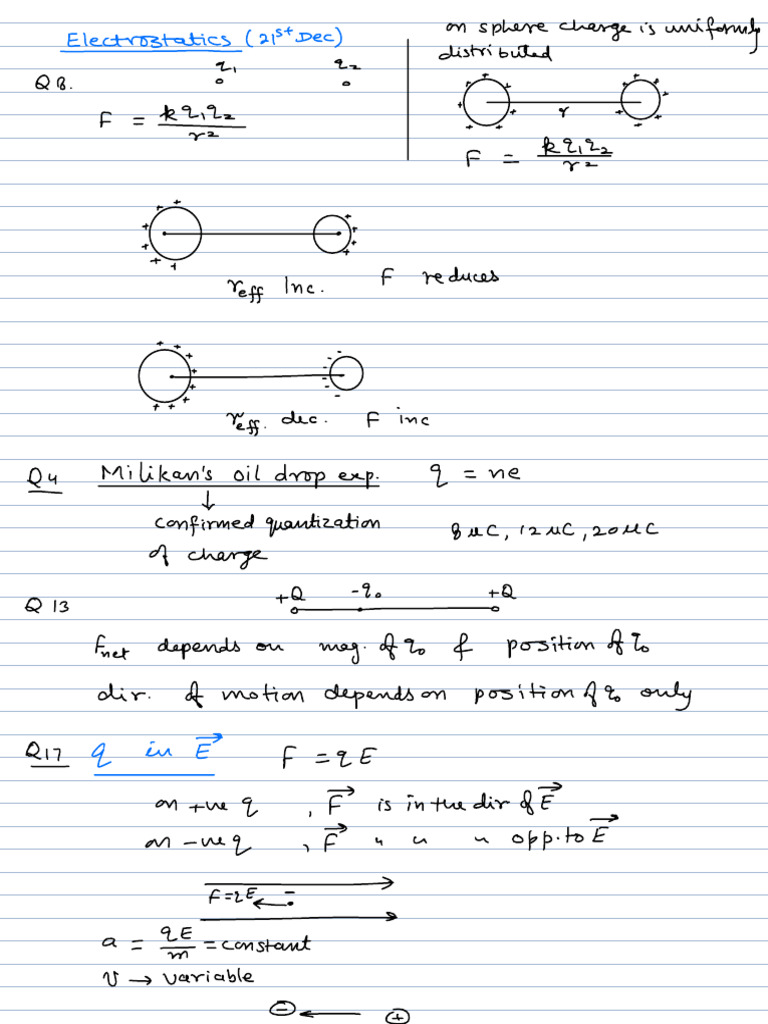 Electrostatics (21st Dec)
Q 8.
q₁ q₂
F = kq₁q₂/r²
on sphere charge is uniformly
distributed
r
F = kq₁q₂/r²
r_eff Inc. F reduces
r_eff. dec. F inc
Q4 Milikan's oil drop exp. q = ne
↓
confirmed quantization
of charge
8 μC, 12 μC, 20 μC
Q 13
+Q -q₀ +Q
F_net depends on mag. of q₀ & position of q₀
dir. of motion depends on position of q₀ only
Q17 q in E→ F = qE
on +ve q , F→ is in the dir of E→
on -ve q , F→ " " " opp. to E→
F=qE ← -
a = qE/m = constant
v → variable
⊖ ← ⊕